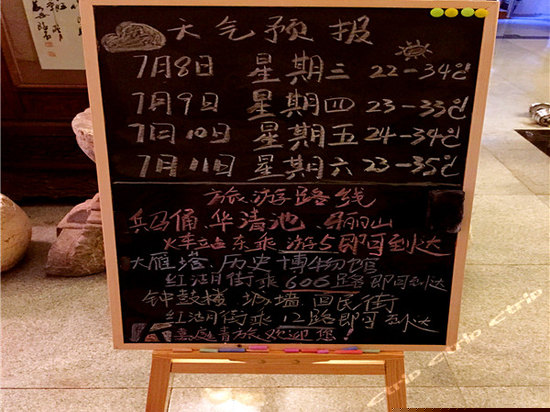 天气预报
7月8日 星期三 22-34℃
7月9日 星期四 23-33℃
7月10日 星期五 24-34℃
7月11日 星期六 23-35℃
旅游路线
兵马俑、华清池、骊山
火车站东乘 游5即可到达
大雁塔、历史博物馆
红湖街乘 606路即可到达
钟鼓楼 城墙 回民街
红湖街乘 12路即可到达
青旅欢迎您!
Ctrip Ctrip Ctrip